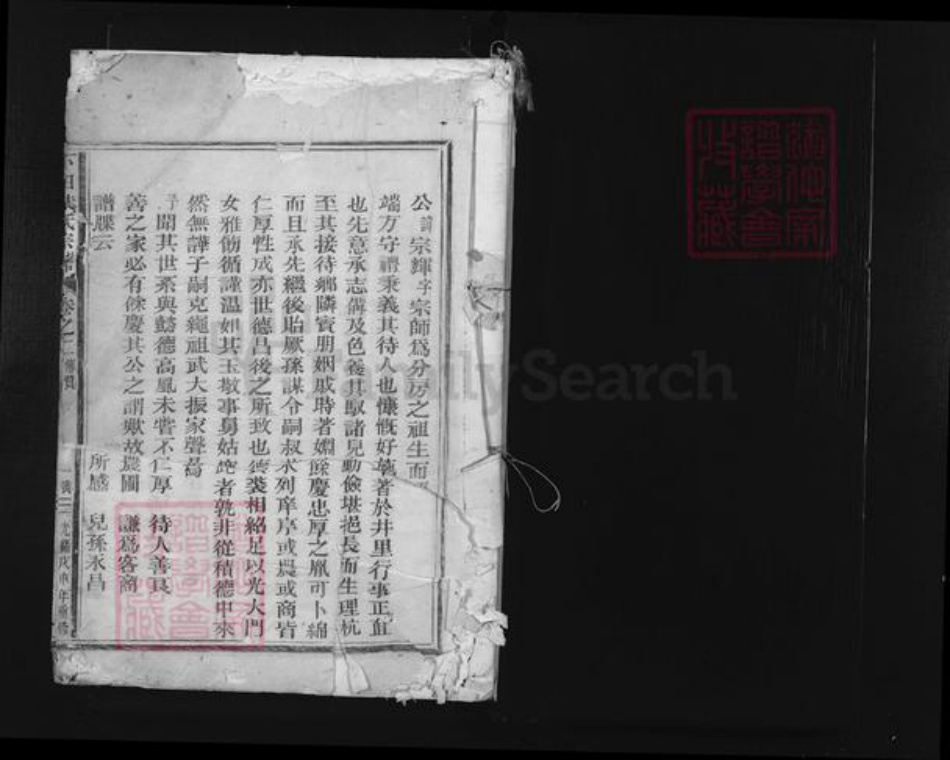 公諱宗輝字宗師爲分房之祖生而
端方守禮秉義其待人也慷慨好義著於井里行事正直
也先意承志備及色養其馭諸兒動儉堪挹長而生理杭
至其接待鄉隣賓朋姻戚時著嫺餘慶忠厚之胤可卜綿
而且承先繼後貽厥孫謀令嗣叔求列庠序或農或商皆
仁厚性成亦世德昌後之所致也 裝相絡足以光大門
女雅飭循謹温如其玉敬事舅姑 者孰非從積德中來
然無譁子嗣克繩祖武大振家聲爲
予聞其世系與懿德高風未嘗不仁厚 待人善良
善之家必有餘慶其公之謂歟故農圃 謙爲客商
譜牒云 所感 兒孫永昌
氏宗譜 卷之二 傳贊 光緒戊申年重修
FamilySearch
譜學會
收藏
譜學會
藏